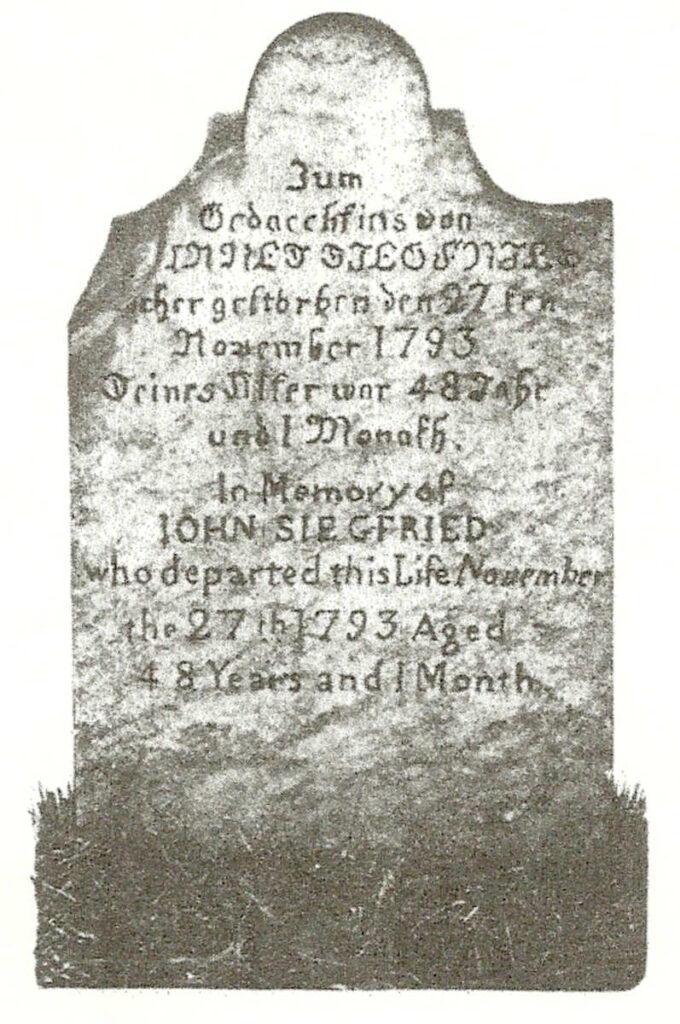 Zum
Gedaechtnis von
SIEGFRIED
gestorben den 27 ten
November 1793
Seines Alter war 48 Jahr
und 1 Monath.
In Memory of
IOHN SIEGFRIED
who departed this Life November
the 27 th 1793 Aged
48 Years and 1 Month.